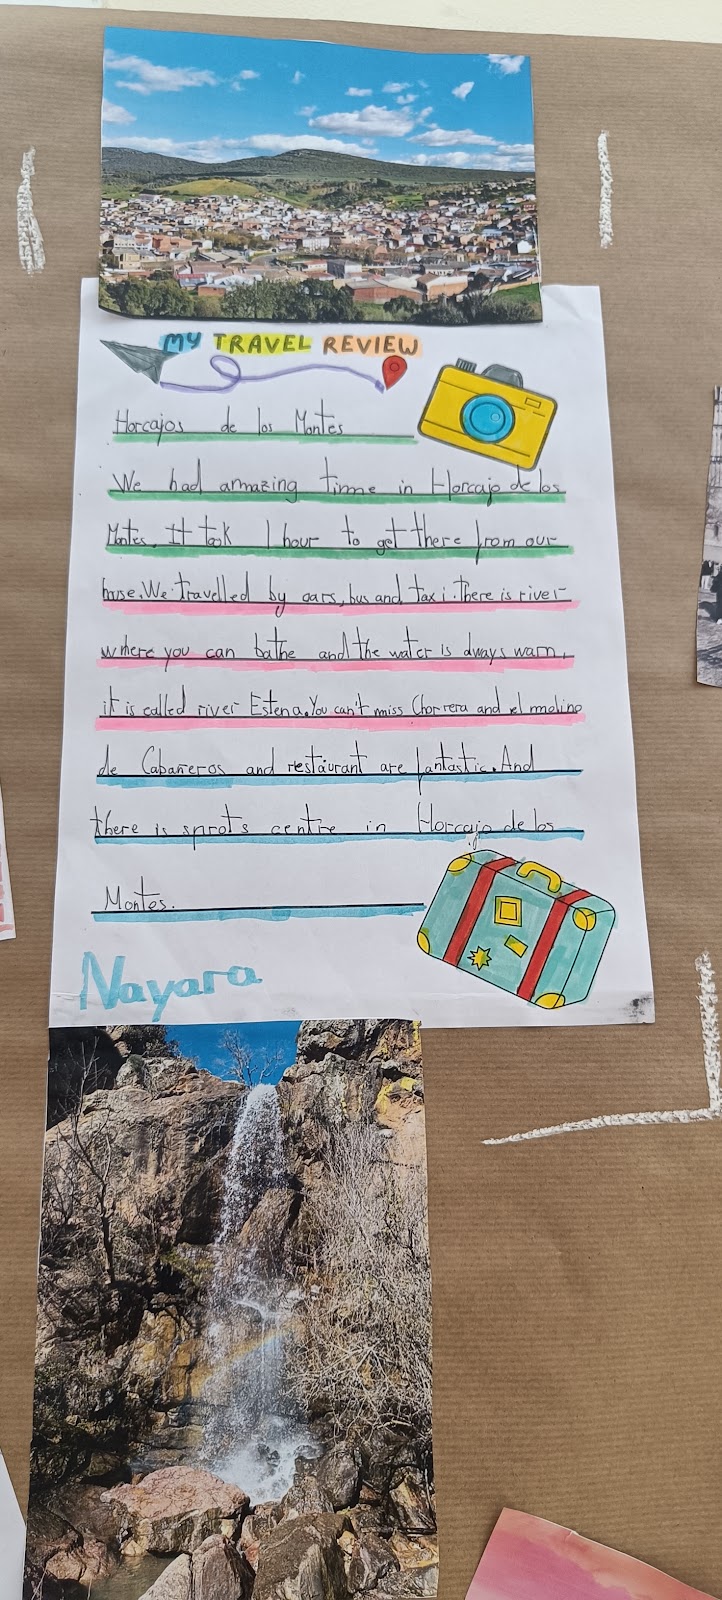 MY TRAVEL REVIEW
Horcajos de los Montes
We had amazing time in Horcajo de los
Montes. It took 1 hour to get there from our
house. We travelled by cars, bus and taxi. There is river
where you can bathe and the water is always warm,
it is called river Estena. You can't miss Chorrera and el molino
de Cabañeros and restaurant are fantastic. And
there is sprots centre in Horcajo de los
Montes.
Nayara